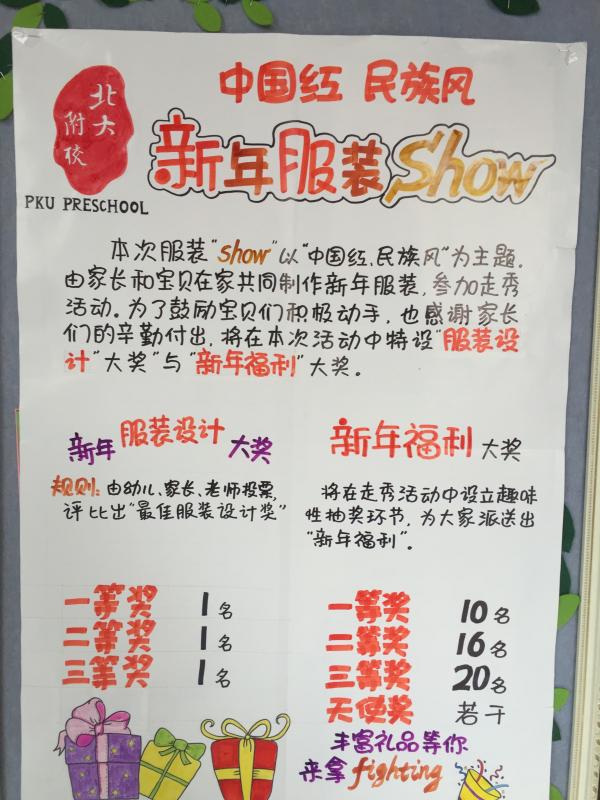 北大
附校
PKU PRESCHOOL
中国红 民族风
新年服装Show
本次服装"Show"以"中国红、民族风"为主题.
由家长和宝贝在家共同制作新年服装,参加走秀
活动。为了鼓励宝贝们积极动手,也感谢家长
们的辛勤付出,将在本次活动中特设"服装设
计"大奖"与"新年福利"大奖。
新年服装设计大奖
规则:由幼儿、家长、老师投票,
评比出"最佳服装设计奖"
一等奖 1名
二等奖 1名
三等奖 1名
新年福利大奖
将在走秀活动中设立趣味
性抽奖环节,为大家派送出
"新年福利"。
一等奖 10名
二等奖 16名
三等奖 20名
天使奖 若干
丰富礼品等你
来拿fighting